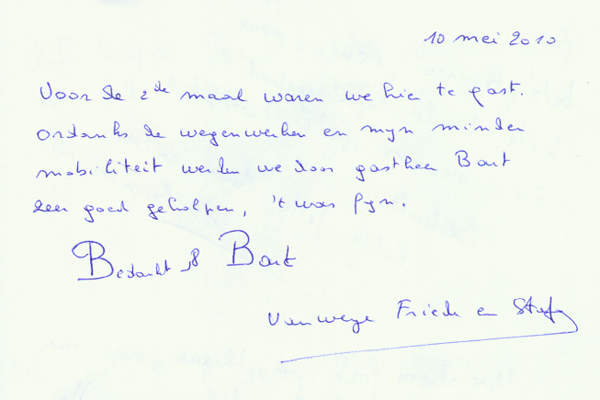 10 mei 2010
Voor de 2de maal waren we hier te gast.
Ondanks de wegenwerken en mijn minder
mobiliteit werden we door gastheer Bart
zeer goed geholpen, 't was fijn.
Bedankt Bart
Vanwege Frieda en Stef